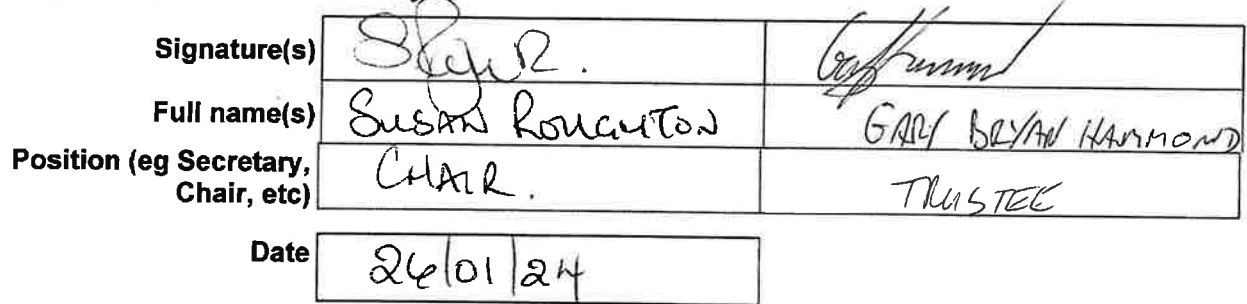 Signature(s)
Full name(s) SUSAN ROUGHTON GARY BRYAN HAMMOND
Position (eg Secretary, CHAIR. TRUSTEE
Chair, etc)
Date 26/01/24